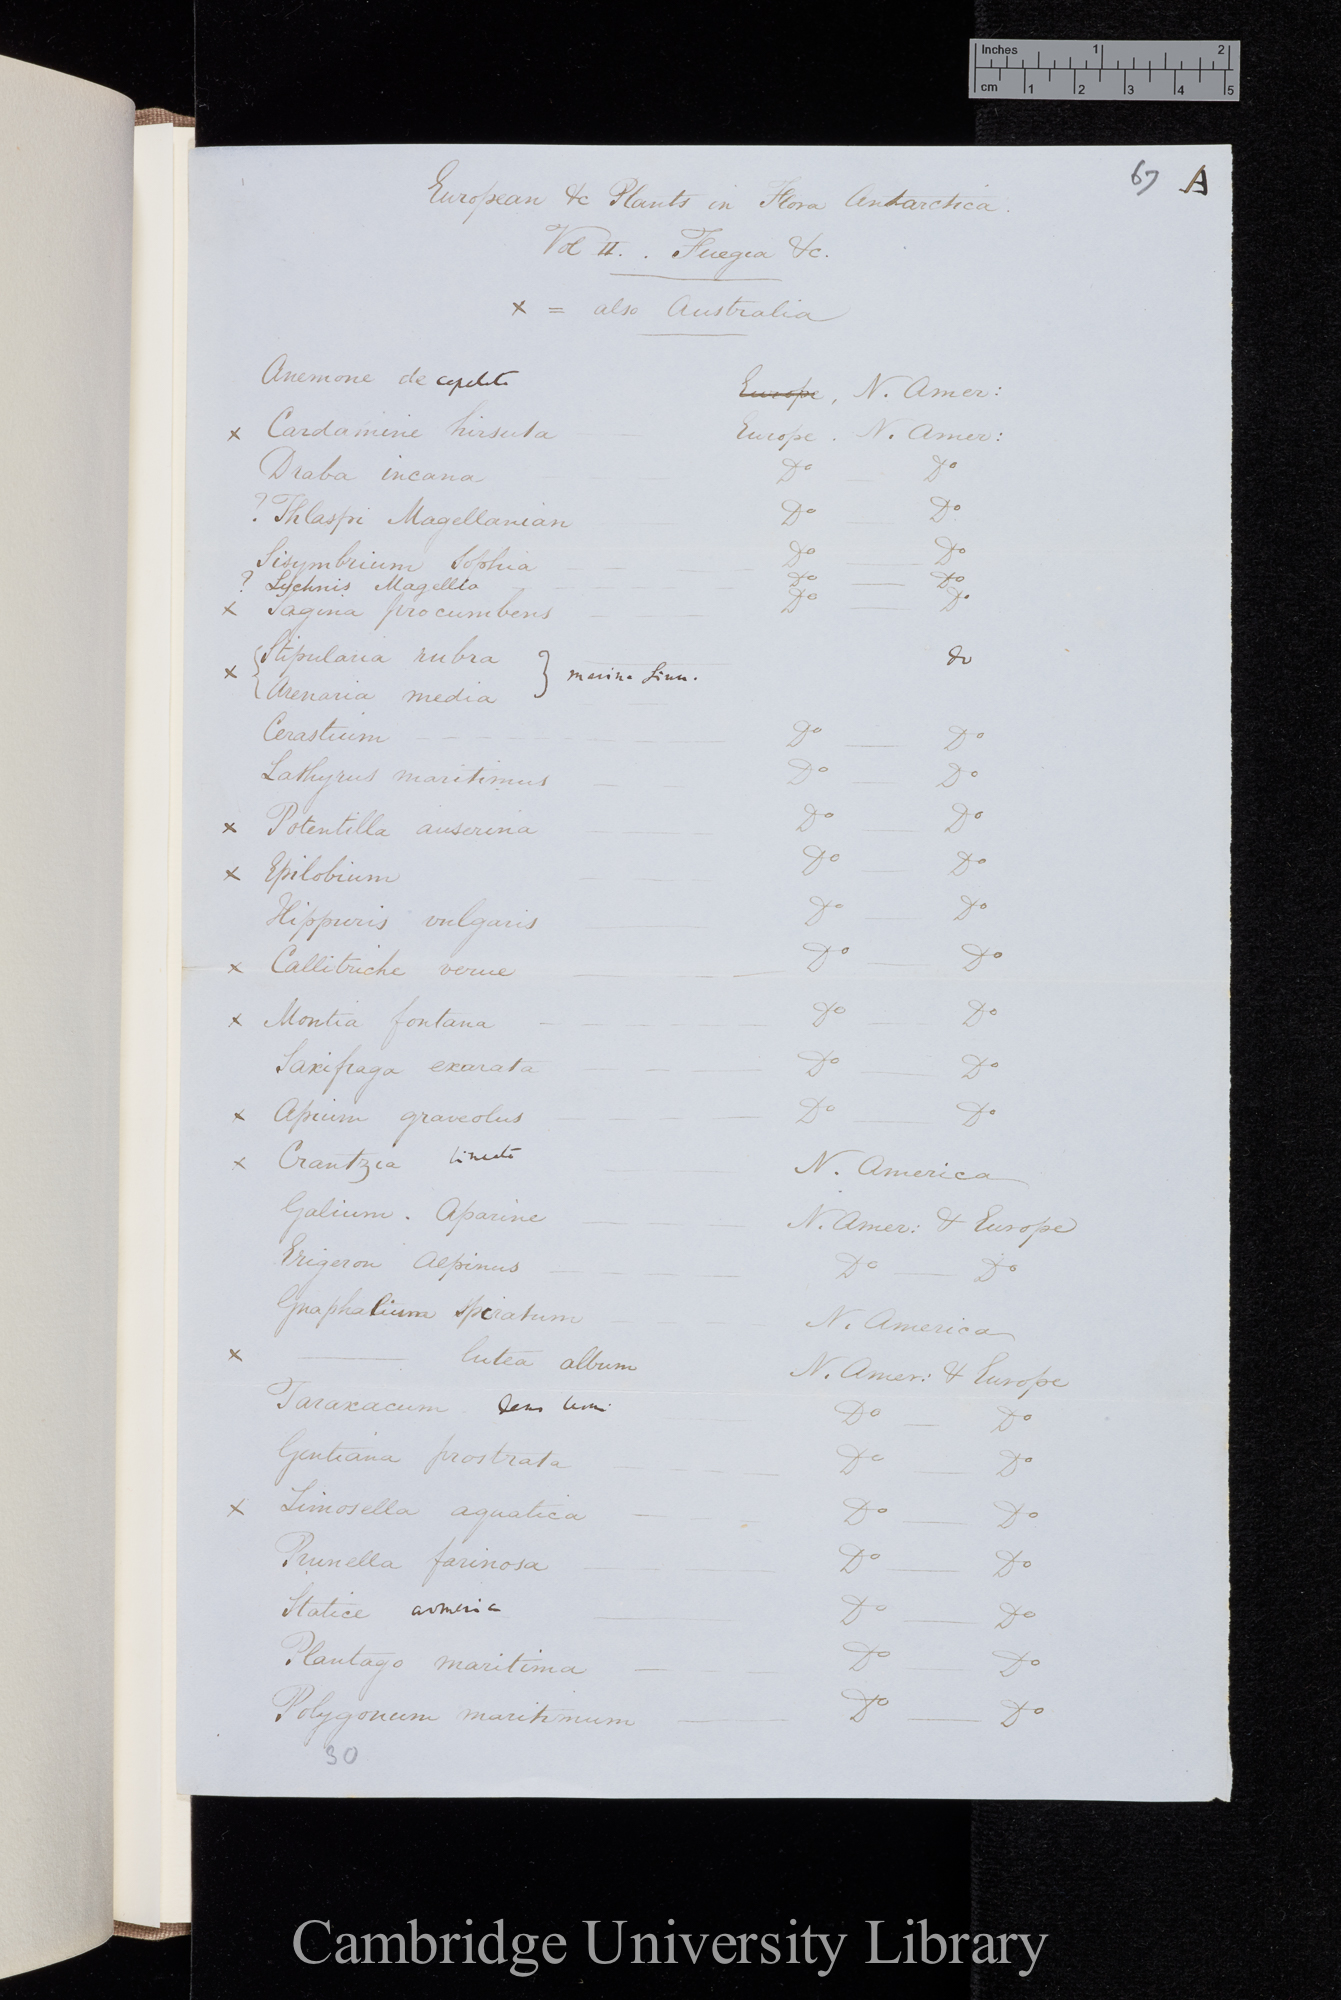 Inches 1 2
cm 1 2 3 4 5
67 A
European &c Plants in Flora Antarctica.
Vol II. . Fuegia &c.
x = also Australia
Anemone decapetata Europe, N. Amer:
x Cardamine hirsuta Europe. N. Amer:
Draba incana Do — Do
? Thlaspi Magellanian Do — Do
Sisymbrium Sophia Do — Do
? Lychnis Magella Do — Do
x Sagina procumbens Do — Do
x { Stipularia rubra } marina Linn. do
Arenaria media
Cerastium Do — Do
Lathyrus maritimus Do — Do
x Potentilla anserina Do — Do
x Epilobium Do — Do
Hippuris vulgaris Do — Do
x Callitriche verne Do — Do
x Montia fontana Do — Do
Saxifraga exarata Do — Do
x Apium graveolus Do — Do
x Crantzia lineata N. America
Galium. Aparine N. Amer: & Europe
Erigeron Alpinus Do — Do
Gnaphalium spicatum N. America
x — lutea album N. Amer: & Europe
Taraxacum Dens leoni Do — Do
Gentiana prostrata Do — Do
x Limosella aquatica Do — Do
Prunella farinosa Do — Do
Statice armeria Do — Do
Plantago maritima Do — Do
Polygonum maritimum Do — Do
30
Cambridge University Library